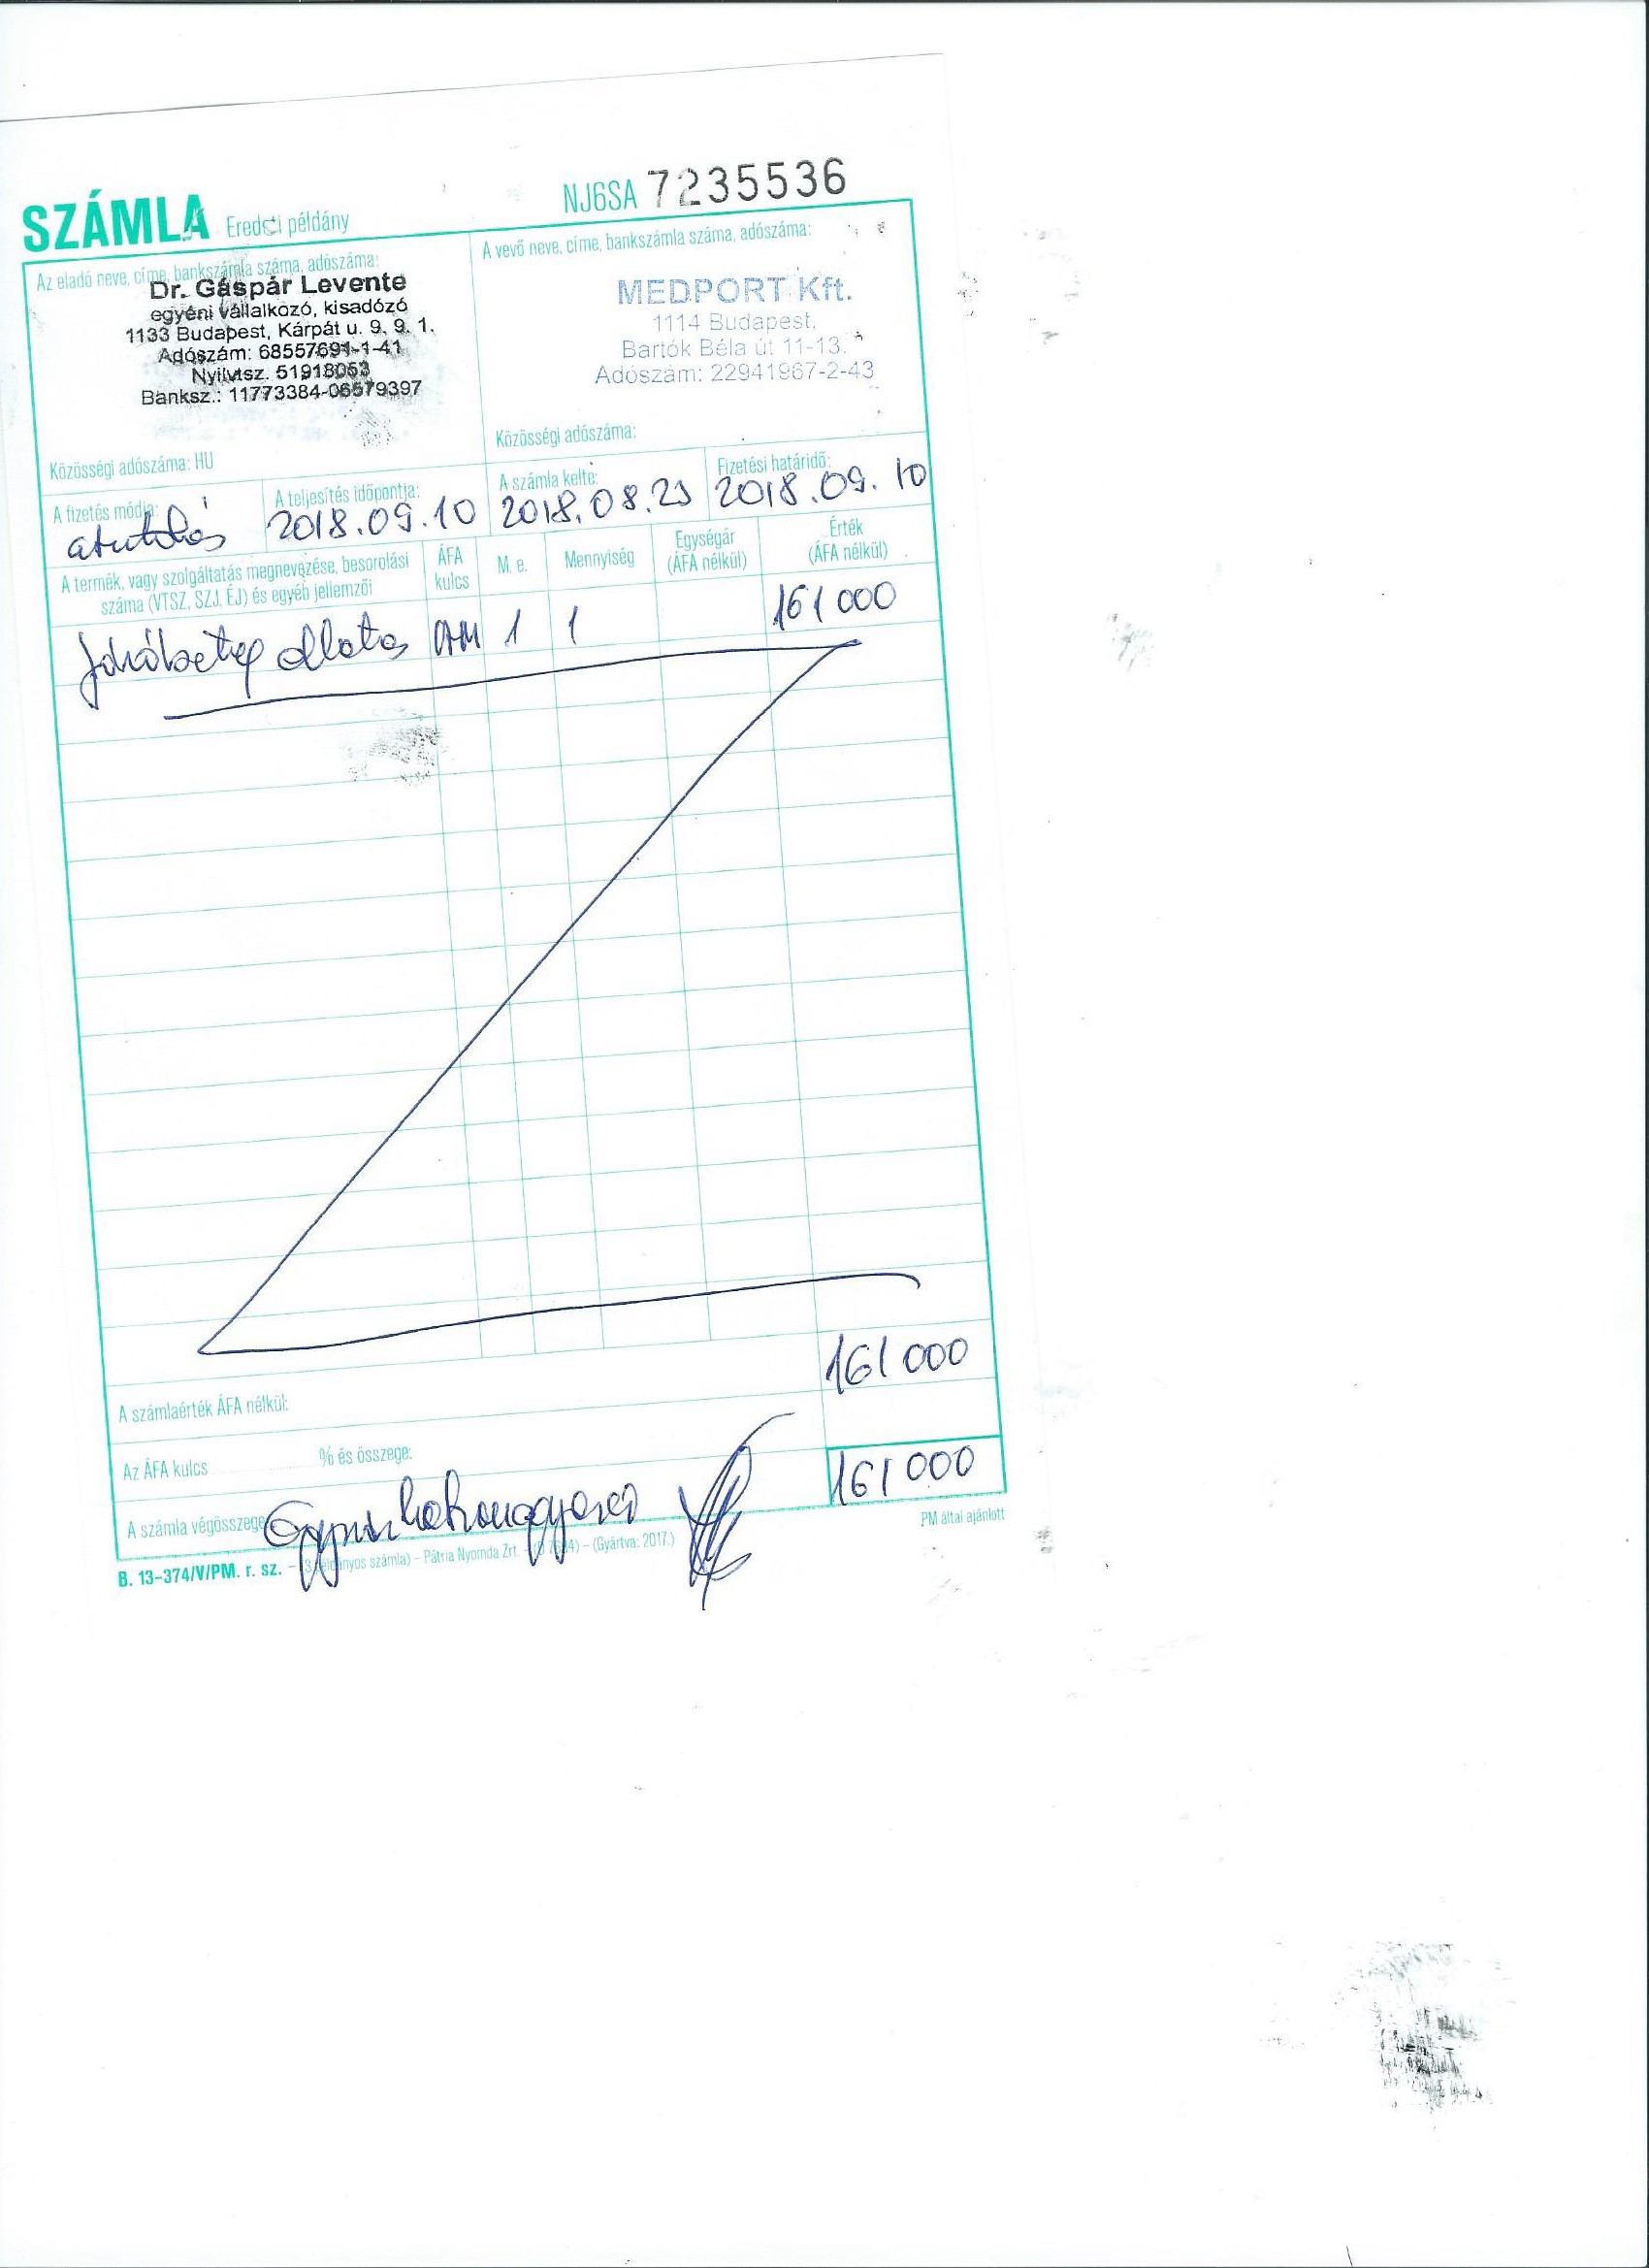 SZÁMLA Eredeti példány NJ6SA 7235536
Az eladó neve, címe, bankszámla száma, adószáma:
Dr. Gáspár Levente
egyéni vállalkozó, kisadózó
1133 Budapest, Kárpát u. 9. 9. 1.
Adószám: 68557691-1-41
Nyilvtsz. 51918053
Banksz.: 11773384-06579397
Közösségi adószáma: HU
A vevő neve, címe, bankszámla száma, adószáma:
MEDPORT Kft.
1114 Budapest,
Bartók Béla út 11-13.
Adószám: 22941967-2-43
Közösségi adószáma:
A fizetés módja:
átutalás
A teljesítés időpontja:
2018.09.10
A számla kelte:
2018.08.23
Fizetési határidő:
2018.09.10
A termék, vagy szolgáltatás megnevezése, besorolási
száma (VTSZ, SZJ, ÉJ) és egyéb jellemzői
ÁFA
kulcs
M. e.
Mennyiség
Egységár
(ÁFA nélkül)
Érték
(ÁFA nélkül)
járóbeteg ellátás AM 1 1 161 000
A számlaérték ÁFA nélkül: 161 000
Az ÁFA kulcs % és összege:
A számla végösszege: 161 000
PM által ajánlott
B. 13-374/V/PM. r. sz. – (3 példányos számla) – Pátria Nyomda Zrt. – (Gyártva: 2017.)